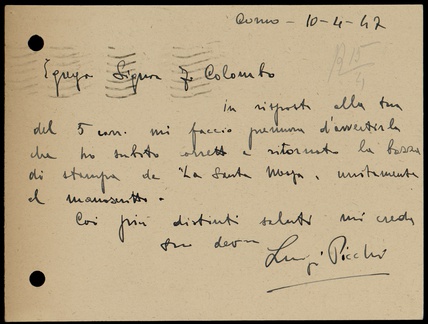 Como - 10-4-47
R 15/4
Egregio Signor F. Colombo
in risposta alla sua
del 5 corr. mi faccio premura d'avvertirla
che ho subito corretto e ritornato la bozza
di stampa de "La Santa Moga, unitamente
al manoscritto.
Coi più distinti saluti mi creda
suo devmo
Luigi Picchi